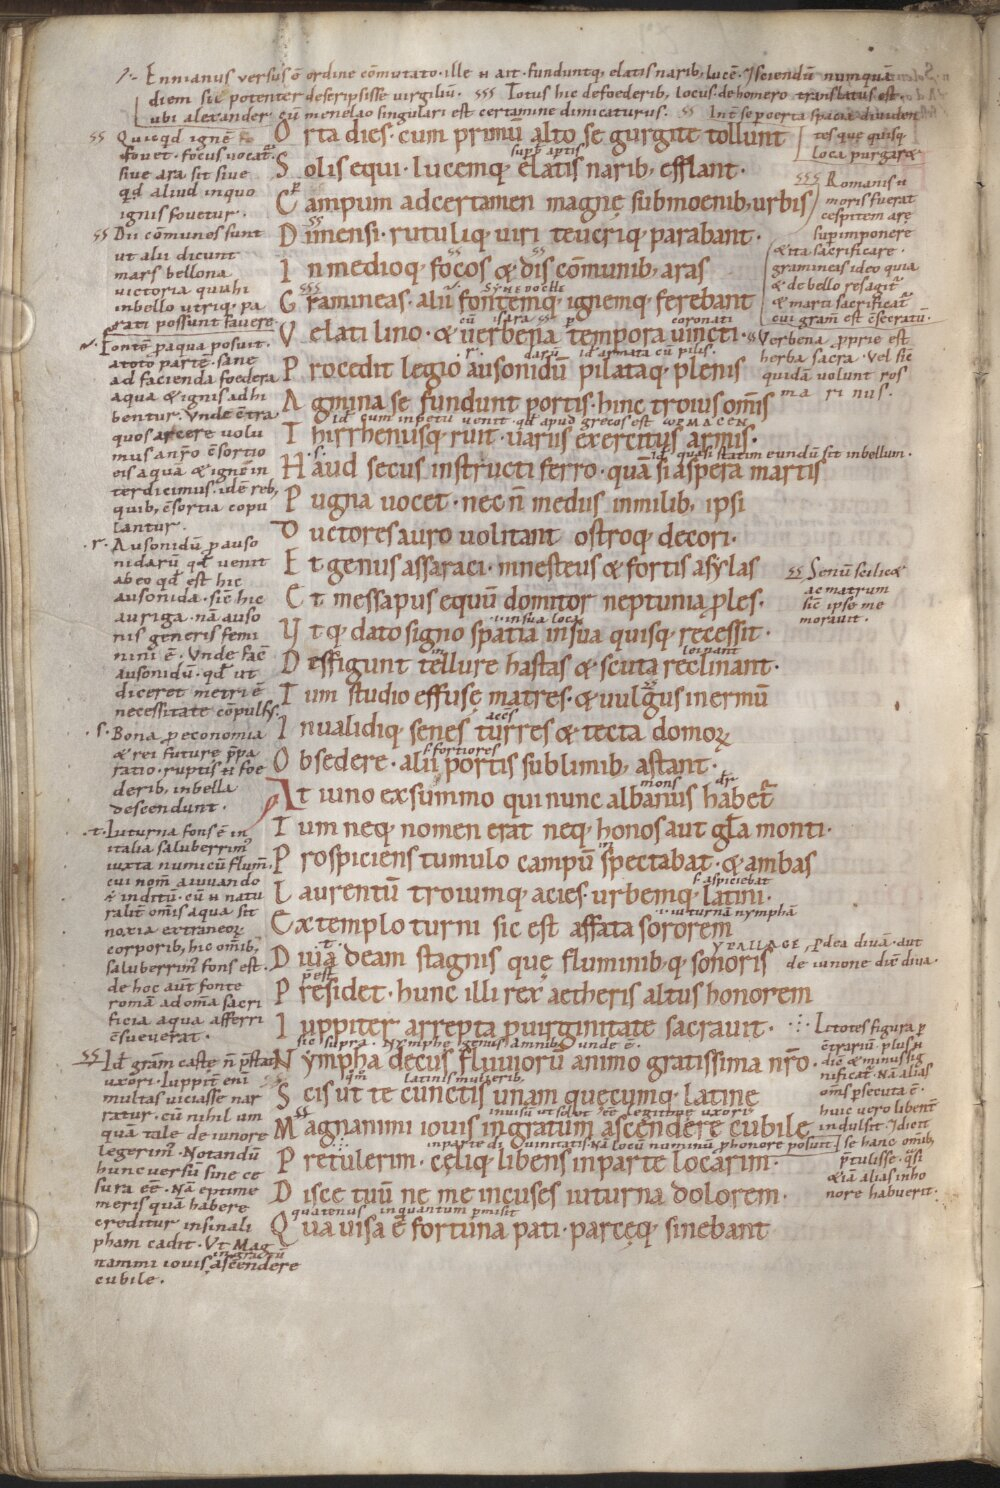 Ennianus versus ē ordine cōmutato · ille ñ ait · funduntq; elatis narib; lucē · Sciendū numquā
diem sic potenter descripsisse virgiliū . Totus hic de foederib; locus de homero translatus est .
ubi alexander cū menelao singulari est certamine dimicaturus .
Int se p certa spacia dividen
tes que quisq;
loca purgaræ
O rta dies · cum primū alto se gurgite tollunt
S olis equi · lucemq; elatis narib; efflant ·
C ampum ad certamen magnę sub moenib; urbis
D imensi · rutuliq; uiri teucriq; parabant ·
I n medioq; focos & dis cōmunib; aras
SYNEDOCHE
G ramineas · alii fontemq; ignemq; ferebant
coronati
V elati lino · & uerbena tempora uincti ·
P rocedit legio ausonidū pilataq; plenis
A gmina se fundunt portis · hinc troius om̄is
T hirrhenusq; ruit · uariis exercitus armis ·
id quasi statim eundū sit in bellum ·
H aud secus instructi ferro · quā si aspera martis
P ugna uocet · nec ñ mediis in milib; ipsi
D uctores auro uolitant ostroq; decori ·
E t genus assaraci · mnesteus & fortis asylas
E t messapus equū domitor neptunia ples ·
i · in sua loca
V tq; dato signo spatia in sua quisq; recessit ·
D effigunt tellure hastas & scuta reclinant ·
T um studio effusę matres · & uulgus inermū
I nualidiq; senes turres & tecta domoꝝ
fortiores
O bsedere · alii portis sublimib; astant ·
mons
A t iuno ex summo qui nunc albanus habet᷑
T um neq; nomen erat neq; honos aut gła monti ·
P rospiciens tumulo campū spectabat · & ambas
aspiciebat
L aurentū troiumq; acies · urbemq; latini ·
i · iuturnā nymphā
E xtemplo turni sic est affata sororem
YPALLAGE
D iua deam stagnis quę fluminib; q; sonoris
P residet · hunc illi rex aetheris altus honorem
I uppiter arrepta p uirginitate sacrauit ·
N ympha decus fluuiorū animo gratissima nr̄o ·
latinis mulierib;
S cis ut te cunctis unam quęcumq; latine
M agnanimi iouis ingratum ascendere cubile
P retulerim · cęliq; libens in parte locarim ·
D isce tuū ne me incuses iuturna dolorem ·
quatenus in quantum pmisit
Q ua uisa ē fortuna pati · parcęq; sinebant
Quicqd ignē
fovet · focus vocat᷑
sive ara sit sive
qd aliud in quo
ignis fovetur ·
Dii cōmunes sunt
ut alii dicunt
mars bellona
victoria qui hi
in bello utriq; pa
rati possunt favere
Fontē p aqua posuit ·
a toto partē · sane
ad facienda foedera
aqua & ignis adhi
bentur · Unde ēcontra
quos arcere volu
mus a nr̄o ēsortio
eis aquā & ignē in
terdicimus · idē reb;
quib; ēsortia copu
lantur ·
· r · Ausonidū p auso
nidarū qd venit
ab eo qd est hic
ausonida · sic hic
auriga · nā auso
nis generis femi
nini ē · Unde facē
ausonidū · qd ut
diceret metri ē
necessitate cōpulsus
· s · Bona p economia
& rei future p̄pa
ratio · ruptis ñ foe
derib; in bella
descendunt ·
· t · Iuturna fons ē in
italia saluberrim᷒
iuxta numicū flum̄
cui nom̄ a iuvando
ē inditū · cū ñ natu
ralit̄ om̄is aqua sit
noxia extraneoꝝ
corporib; hic om̄ib;
saluberrim᷒ fons est ·
de hoc aut fonte
romā ad om̄a sacri
ficia aqua afferri
ēsueverat ·
Id gram̄ caste ñ p̄stat
uxori · Iuppit̄ eni
multas viciasse nar
ratur · cū nihil um
quā tale de iunore
legerim᷒ · Notandū
hunc versū sine ce
sura eē · Nā eptime
meris quā habere
creditur in sinali
pham cadit · Ut Mag
nanimi iovis ingratū ascendere
cubile ·
Romanis ñ
moris fuerat
cespitem arę
sup imponere
& ita sacrificare ·
gramineas ideo quia
& de bello res agit᷑
& marti sacrificat᷑
cui gram̄ est ēsecratū ·
Verbena p̄prie est
herba sacra · vel sic
quidā volunt ros
marinus ·
Senū scilic&
ac matrum
sic ipse me
moravit ·
p dea divā · aut
de iunone dic̄ diva ·
Litotes figura p
ētrariū · plus ñ
dic̄ & minus sig
nificat᷑ · Nā alias
om̄s psecuta ē ·
huic vero libent̄
indulsit · Id cit
se hanc om̄ib;
p̄tulisse · qsi
& iā alias in ho
nore habuerit ·